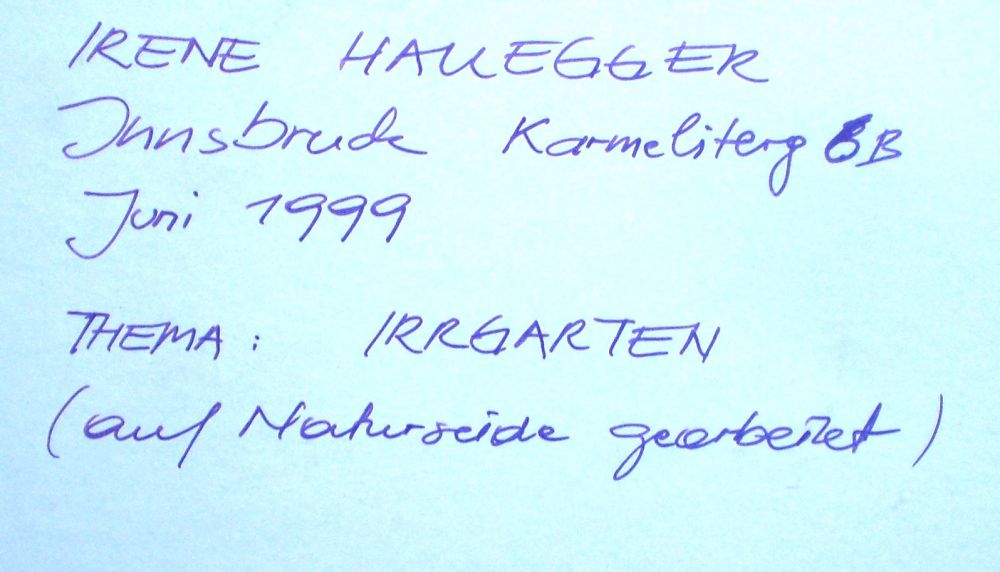 IRENE HAUEGGER
Innsbruck Karmeliterg 6B
Juni 1999
THEMA: IRRGARTEN
(auf Naturseide gearbeitet)